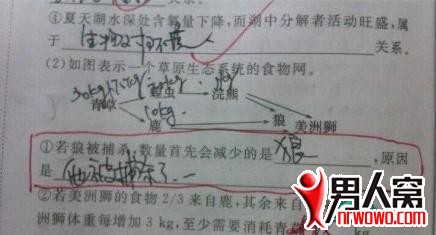 ④夏天湖水深处含氧量下降,而湖中分解者活动旺盛,属
于 关系。
(2)如图表示一个草原生态系统的食物网。
浣熊
鹿 狼 美洲狮
①若狼被捕杀,数量首先会减少的是 狼 ,原因
是 他被捕杀了.
②若美洲狮的食物2/3来自鹿,其余来自
洲狮体重每增加3 kg,至少需要消耗青
男人窝
nrwowo.com